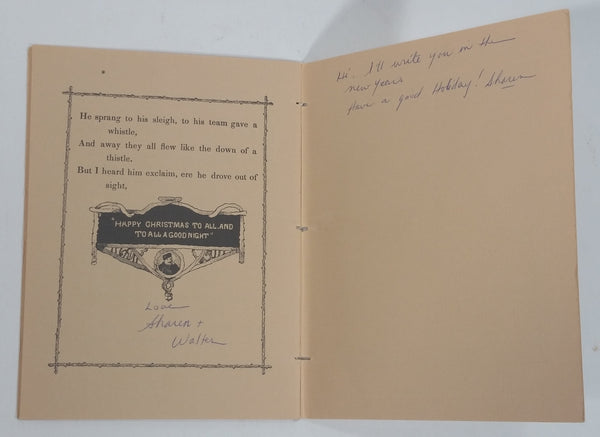 He sprang to his sleigh, to his team gave a
whistle,
And away they all flew like the down of a
thistle.
But I heard him exclaim, ere he drove out of
sight,
"HAPPY CHRISTMAS TO ALL AND
TO ALL A GOOD NIGHT"
Love
Sharen +
Walter
Hi. I'll write you in the
new years
Have a good Holiday! Sharen